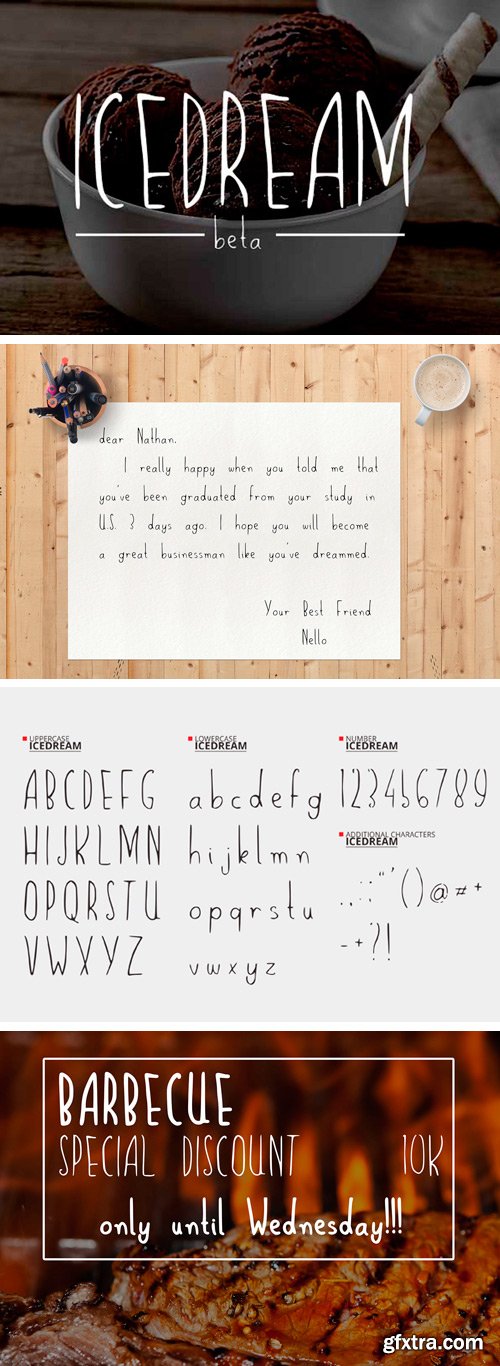 ICEDREAM
beta
dear Nathan,
I really happy when you told me that
you've been graduated from your study in
U.S. 3 days ago. I hope you will become
a great businessman like you've dreammed.
Your Best Friend
Nello
UPPERCASE
ICEDREAM
ABCDEFG
HIJKLMN
OPQRSTU
VWXYZ
LOWERCASE
ICEDREAM
abcdefg
hijklmn
opqrstu
vwxyz
NUMBER
ICEDREAM
123456789
ADDITIONAL CHARACTERS
ICEDREAM
.,:;"'()@≠+
-+?!
BARBECUE
SPECIAL DISCOUNT 10K
only until Wednesday!!!
gfxtra.com